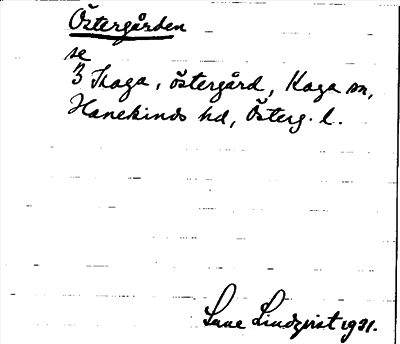 Östergården
se
3 Kaga, östergård, Kaga sn,
Hanekinds hd, Österg. l.
Sune Lindqvist 1921.